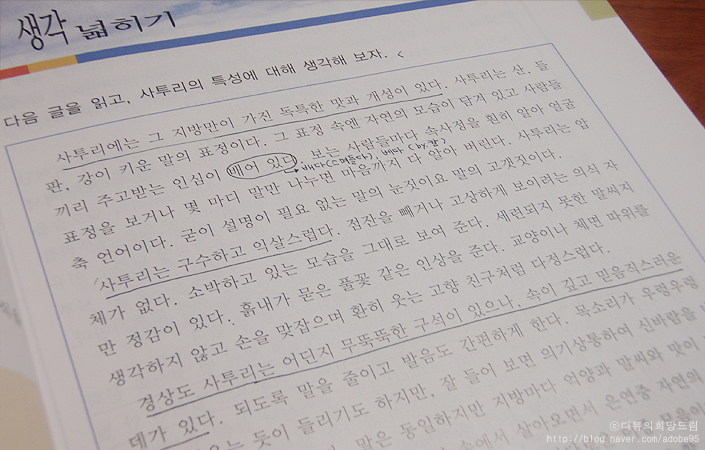 생각 넓히기
다음 글을 읽고, 사투리의 특성에 대해 생각해 보자.
사투리에는 그 지방만이 가진 독특한 맛과 개성이 있다. 사투리는 산, 들
판, 강이 키운 말의 표정이다. 그 표정 속엔 자연의 모습이 담겨 있고 사람들
끼리 주고받는 인심이 배어 있다. 보는 사람들마다 속사정을 훤히 알아 얼굴
배다(스며들다), 베다(by 칼)
표정을 보거나 몇 마디 말만 나누면 마음까지 다 알아 버린다. 사투리는 압
축 언어이다. 굳이 설명이 필요 없는 말의 눈짓이요 말의 고갯짓이다.
사투리는 구수하고 익살스럽다. 점잔을 빼거나 고상하게 보이려는 의식 자
체가 없다. 소박하고 있는 모습을 그대로 보여 준다. 세련되지 못한 말씨지
만 정감이 있다. 흙내가 묻은 풀꽃 같은 인상을 준다. 교양이나 체면 따위를
생각하지 않고 손을 맞잡으며 환히 웃는 고향 친구처럼 다정스럽다.
경상도 사투리는 어딘지 무뚝뚝한 구석이 있으나, 속이 깊고 믿음직스러운
데가 있다. 되도록 말을 줄이고 발음도 간편하게 한다. 목소리가 우렁우렁
듯이 들리기도 하지만, 잘 들어 보면 의기상통하여 신바람을
많은 동일하지만 지방마다 억양과 말씨와 맛이
속에서 살아오면서 은연중 자연의
ⓒ다뷰의희망드림
http://blog.naver.com/adobe95